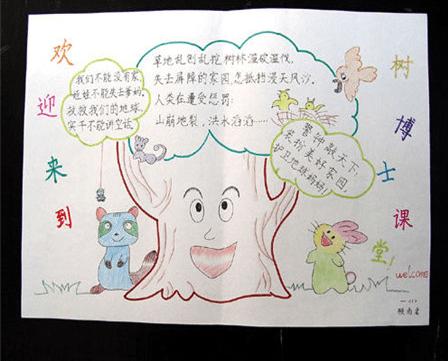 欢迎来到
树博士课堂!
welcome
我们不能没有家,
娃娃不能失去爹妈。
拯救我们的地球,
实干不能讲空话。
草地乱刨乱挖,树林滥砍滥伐,
失去屏障的家园,怎抵挡漫天风沙。
人类在遭受惩罚:
山崩地裂,洪水滔滔……
警钟敲天下,
装扮美好家园,
护卫地球妈妈!